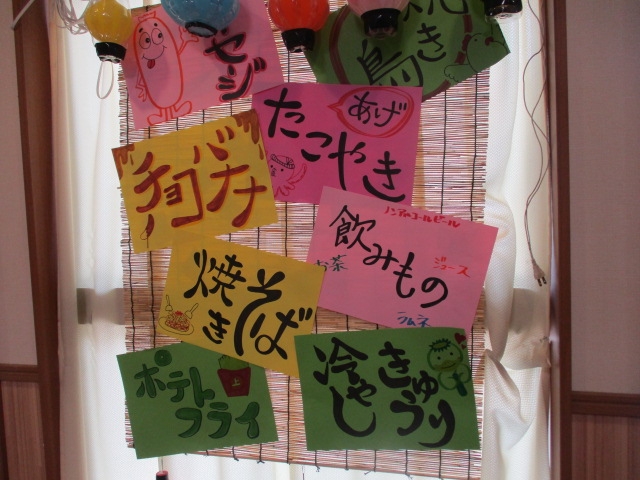 セジ
焼き
鳥
あげ
たこやき
チョコバナナ
ノンアルコールビール
飲みもの
お茶
ジュース
ラムネ
焼き
そば
ポテト
フライ
冷やし
きゅうり